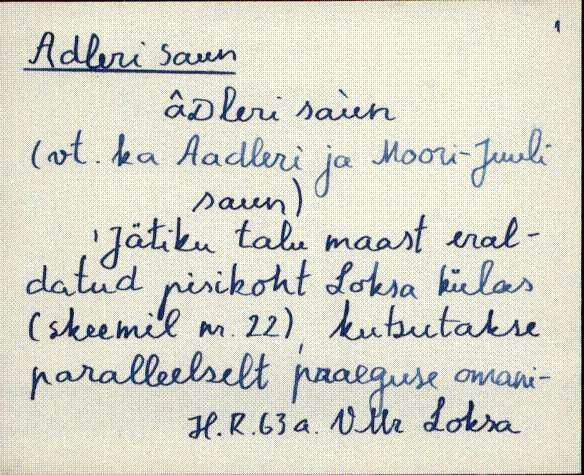 1
Adleri saun
âDleri saùn
(vt. ka Aadleri ja Moori-Juuli
saun)
'Jätiku talu maast eral-
datud pisikoht Loksa külas
(skeemil nr. 22), kutsutakse
paralleelselt praeguse omani-
H.R.63 a. VMr Loksa